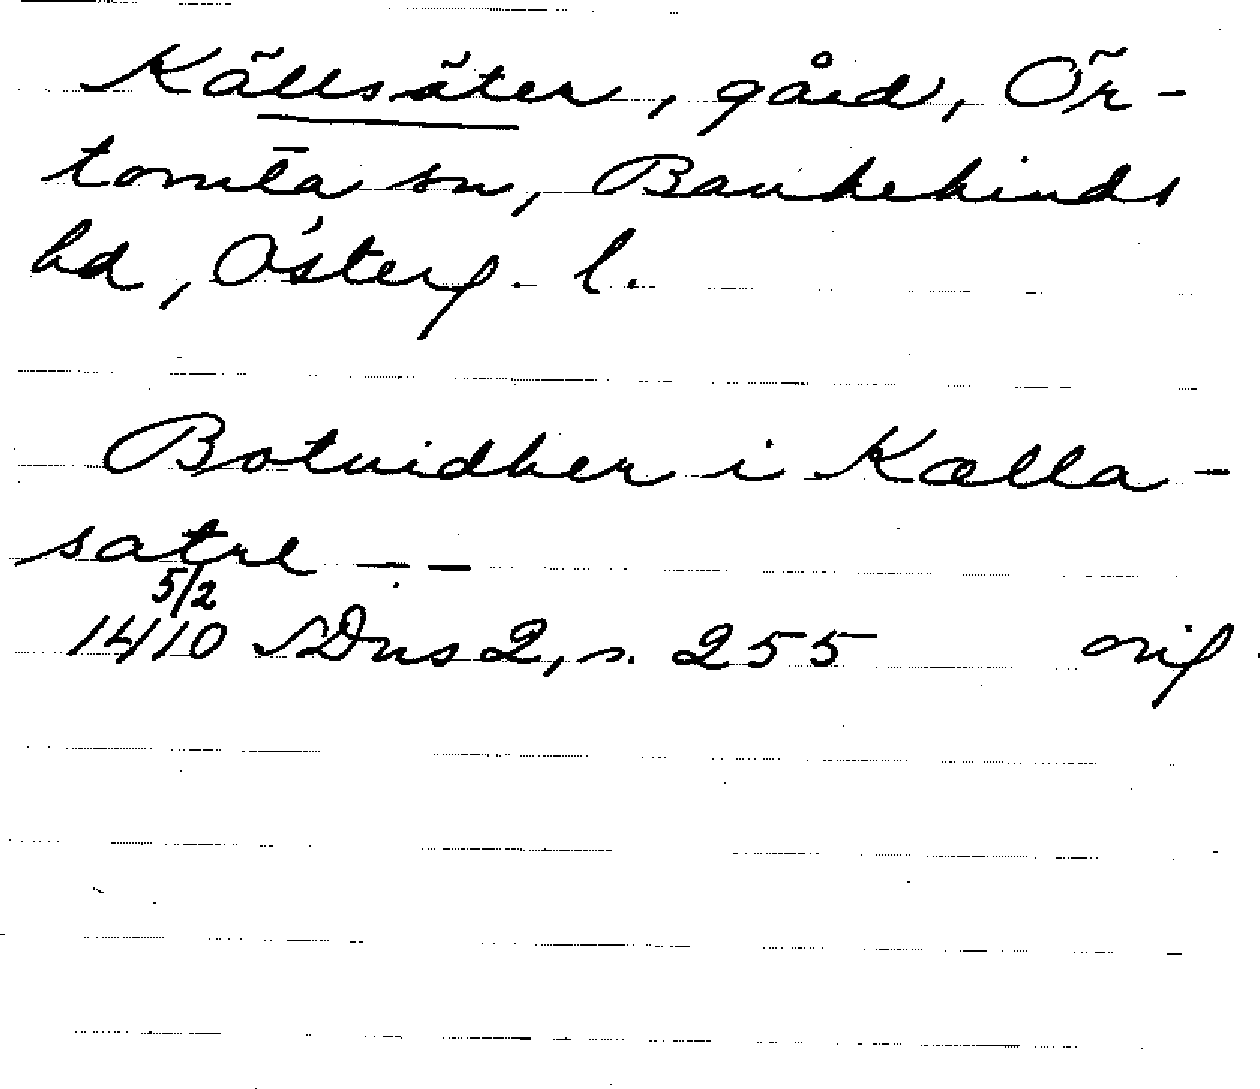 Källsäter, gård, Ör-
tomta sn, Bankekinds
hd, Österg. l.
Botuidher i Kælla-
satre --
5/2
1410 SDns 2, s. 255 orig.